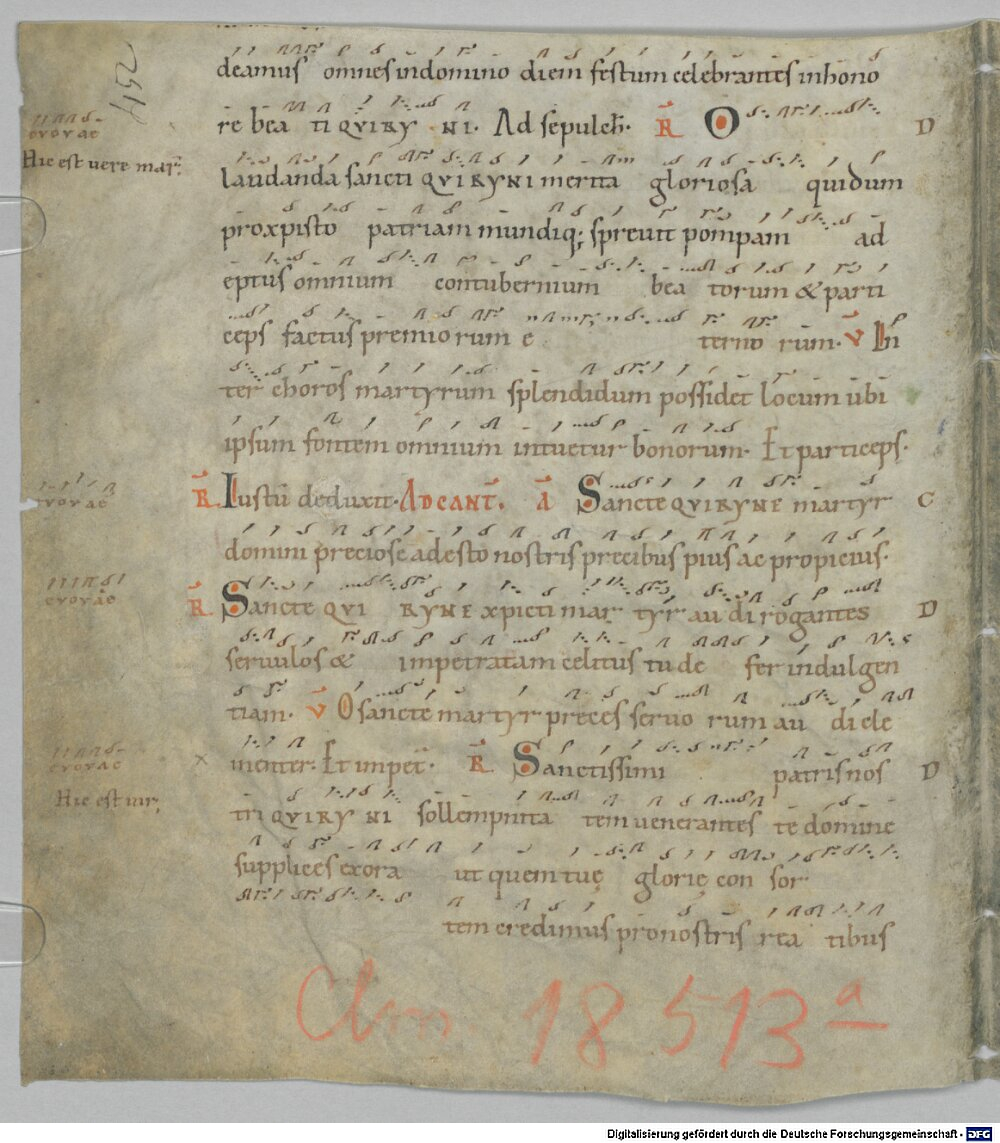 452
deamus omnes in domino diem festum celebrantes in hono
re bea ti QVIRY NI. Ad sepulch̅. R̅ O D
evovae
Hic est vere mar̅.
laudanda sancti QVIRYNI merita gloriosa qui dum
pro xpisto patriam mundiq; sprevit pompam ad
eptus omnium contubernium bea torum & parti
ceps factus premio rum e terno rum. V̅ In
ter choros martyrum splendidum possidet locum ubi
ipsum fontem omnium intuetur bonorum. Et particeps.
evovae
R̅ Iustū deduxit. AD CANT̅. A̅ Sancte QVIRYNE martyr C
domini preciose adesto nostris precibus pius ac propicius.
evovae
R̅ Sancte QVI RYNE xpicti mar tyr au di rogantes D
servulos & impetratam celitus tu de fer indulgen
tiam. V̅ O sancte martyr preces servo rum au di cle
evovae
menter. Et impet̅. R̅ Sanctissimi patris nos D
Hic est vir,
tri QVIRY NI sollempnita tem venerantes te domine
supplices exora ut quem tuę glorię con sor
tem credimus pro nostris rea tibus
Clm 18513a
Digitalisierung gefördert durch die Deutsche Forschungsgemeinschaft - DFG